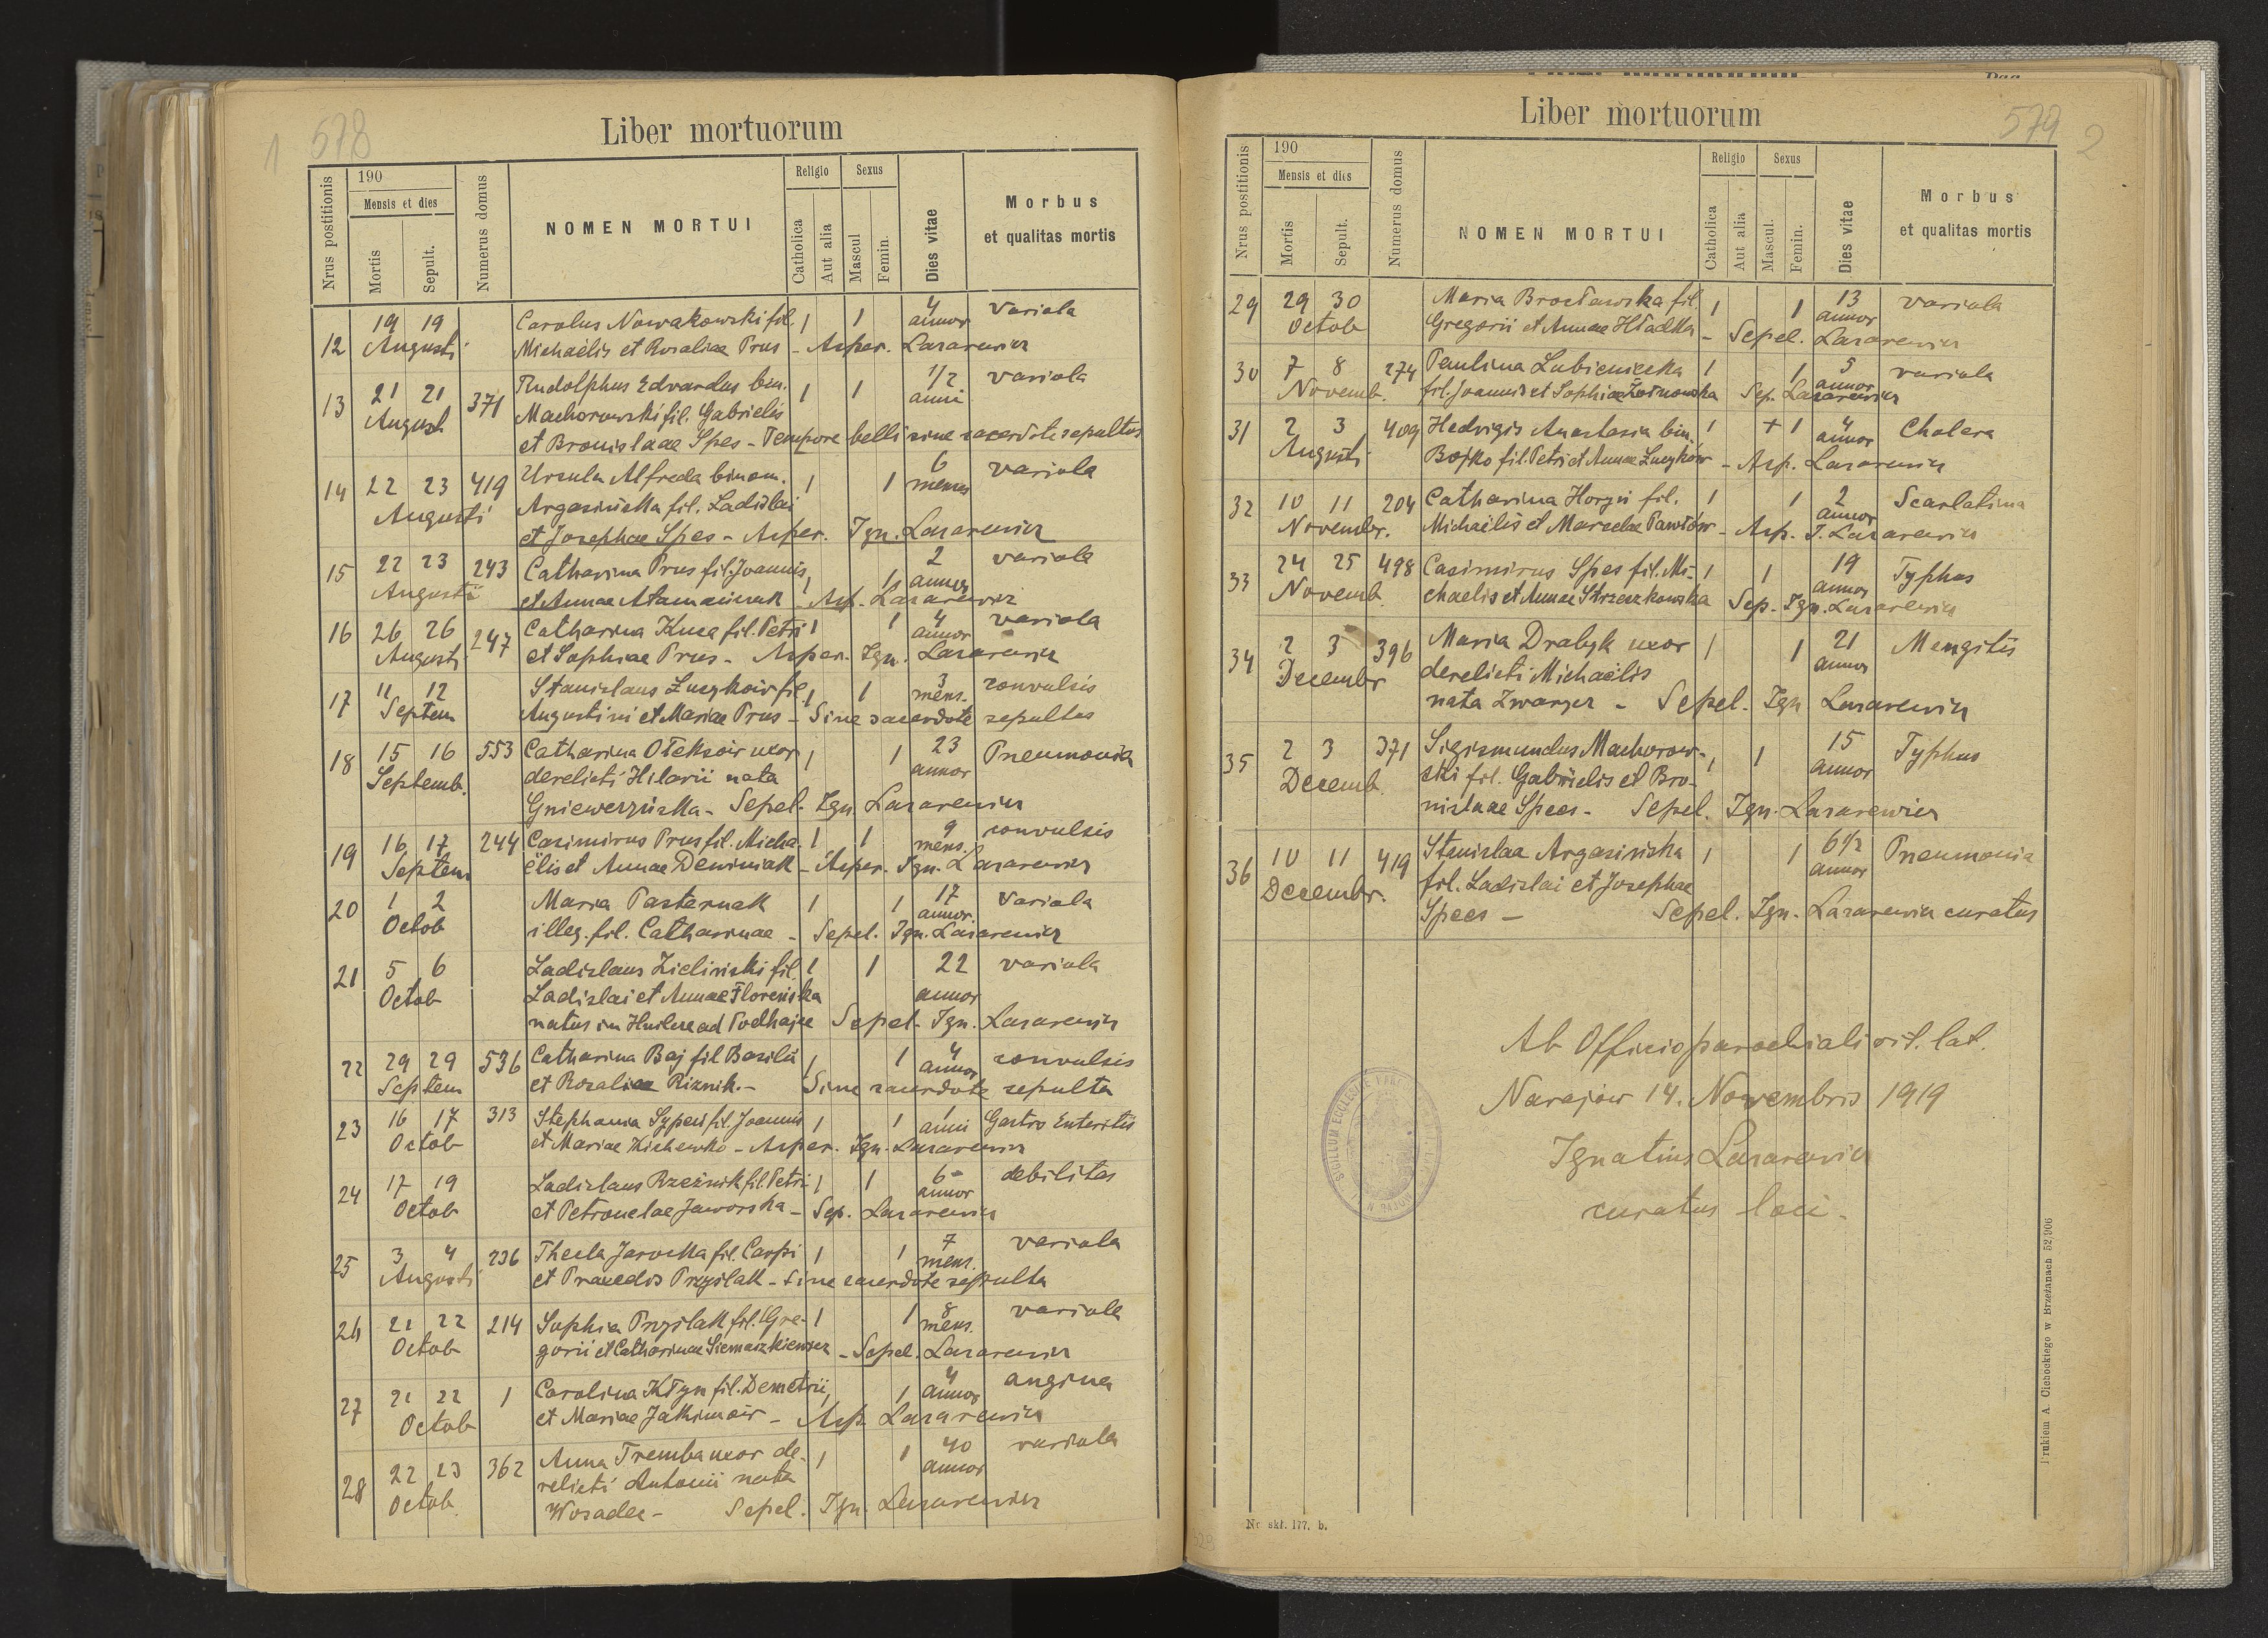 1 578
Liber mortuorum
Nrus postitionis
190
Mensis et dies
Mortis
Sepult.
Numerus domus
NOMEN MORTUI
Religio
Catholica
Aut alia
Sexus
Mascul
Femin.
Dies vitae
Morbus
et qualitas mortis
12 19 19 Carolus Nowakowski fil. 1 1 4 variola
Augusti Michaëlis et Rosaliae Prus - Asper. Lazarewicz annor
13 21 21 371 Rudolphus Edvardus bin. 1 1 1/2 variola
August Machorowski fil. Gabrielis anni
et Bronislaae Spes - Tempore belli sine sacerdote sepultus
14 22 23 419 Ursula Alfreda binom. 1 1 6 variola
Augusti Argasińska fil. Ladislai menses
et Josephae Spes - Asper. Ign. Lazarewicz
15 22 23 243 Catharina Prus fil. Joannis 1 1 2 variola
Augusti et Annae Atamańczuk - Asp. Lazarewicz annor
16 26 26 247 Catharina Kuca fil. Petri 1 1 4 variola
Augusti et Sophiae Prus - Asper. Ign. Lazarewicz annor
17 11 12 Stanislaus Łuczków fil. 1 1 3 convulsis
Septem Augustini et Mariae Prus - Sine sacerdote sepultus mens.
18 15 16 553 Catharina Ołeksów uxor 1 1 23 Pneumonia
Septemb. derelicti Hilarii nata annor
Gniewerzińska - Sepel. Ign. Lazarewicz
19 16 17 244 Casimirus Prus fil. Micha- 1 1 9 convulsis
Septem ëlis et Annae Deminiak - Asper. Ign. Lazarewicz mens.
20 1 2 Maria Pasternak 1 1 17 variola
Octob illeg. fil. Catharinae - Sepel. Ign. Lazarewicz annor.
21 5 6 Ladislaus Zieliński fil. 1 1 22 variola
Octob Ladislai et Annae Floreńska annor
natus in Huilcze ad Podhajce Sepel. Ign. Lazarewicz
22 29 29 536 Catharina Baj fil Basilii 1 1 4 convulsis
Septem et Rosaliae Riznik. - Sine sacerdote sepulta annor
23 16 17 313 Stephania Sypeń fil. Joannis 1 1 1 Gastro Enteritis
Octob et Mariae Zichewko - Asper. Ign. Lazarewicz anni
24 17 19 Ladislaus Rzeźnik fil. Petri 1 1 6 debilitas
Octob et Petronelae Jaworska - Sep. Lazarewicz annor
25 3 4 236 Thecla Jarocka fil. Carpi 1 1 7 variola
Augusti et Praxedis Przyślak - Sine sacerdote sepulta mens.
26 21 22 214 Sophia Przyślak fil. Gre- 1 1 8 variola
Octob gorii et Catharinae Siemaszkiewicz - Sepel. Lazarewicz mens.
27 21 22 1 Carolina Kłyn fil. Demetrii 1 1 4 angina
Octob et Mariae Jakimów - Asp. Lazarewicz annor
28 22 23 362 Anna Tremba uxor de- 1 1 40 variola
Octob. relicti Antonii nata annor
Wosadca - Sepel. Ign. Lazarewicz
579 2
Liber mortuorum
Nrus postitionis
190
Mensis et dies
Mortis
Sepult.
Numerus domus
NOMEN MORTUI
Religio
Catholica
Aut alia
Sexus
Mascul.
Femin.
Dies vitae
Morbus
et qualitas mortis
29 29 30 Maria Brocławska fil. 1 1 13 variola
Octob Gregorii et Annae Hładka - Sepel. Lazarewicz annor
30 7 8 274 Paulina Lubieniecka 1 1 5 variola
Novemb. fil. Joannis et Sophiae Zoinowska Sep. Lazarewicz annor
31 2 3 409 Hedvigis Anastasia bin. 1 + 1 4 Cholera
Augusti Bojko fil. Petri et Annae Łuczków - Asp. Lazarewicz annor
32 10 11 204 Catharina Horyń fil. 1 1 2 Scarlatina
Novembr. Michaëlis et Marcelae Pawłów - Asp. I. Lazarewicz annor
33 24 25 498 Casimirus Spes fil. Mi- 1 1 19 Typhus
Novemb. chaelis et Annae Strzeszkowska Sep. Ign. Lazarewicz annor
34 2 3 396 Maria Drabyk uxor 1 1 21 Mengitis
Decembr derelicti Michaëlis annor
nata Zwarycz - Sepel. Ign Lazarewicz
35 2 3 371 Sigismundus Machorow- 1 1 15 Typhus
Decemb. ski fil. Gabrielis et Bro- annor
nislaae Spees - Sepel. Ign. Lazarewicz
36 10 11 419 Stanislaa Argasińska 1 1 6 1/2 Pneumonia
Decembr. fil. Ladislai et Josephae annor
Spees - Sepel. Ign. Lazarewicz curatus
Ab Officio parochiali rit. lat.
Narajow 14. Novembris 1919
Ignatius Lazarewicz
curatus loci -
SIGILLUM ECCLESIAE
Nr. skł. 177. b.
Drukiem A. Cichockiego w Brzeżanach 52/906